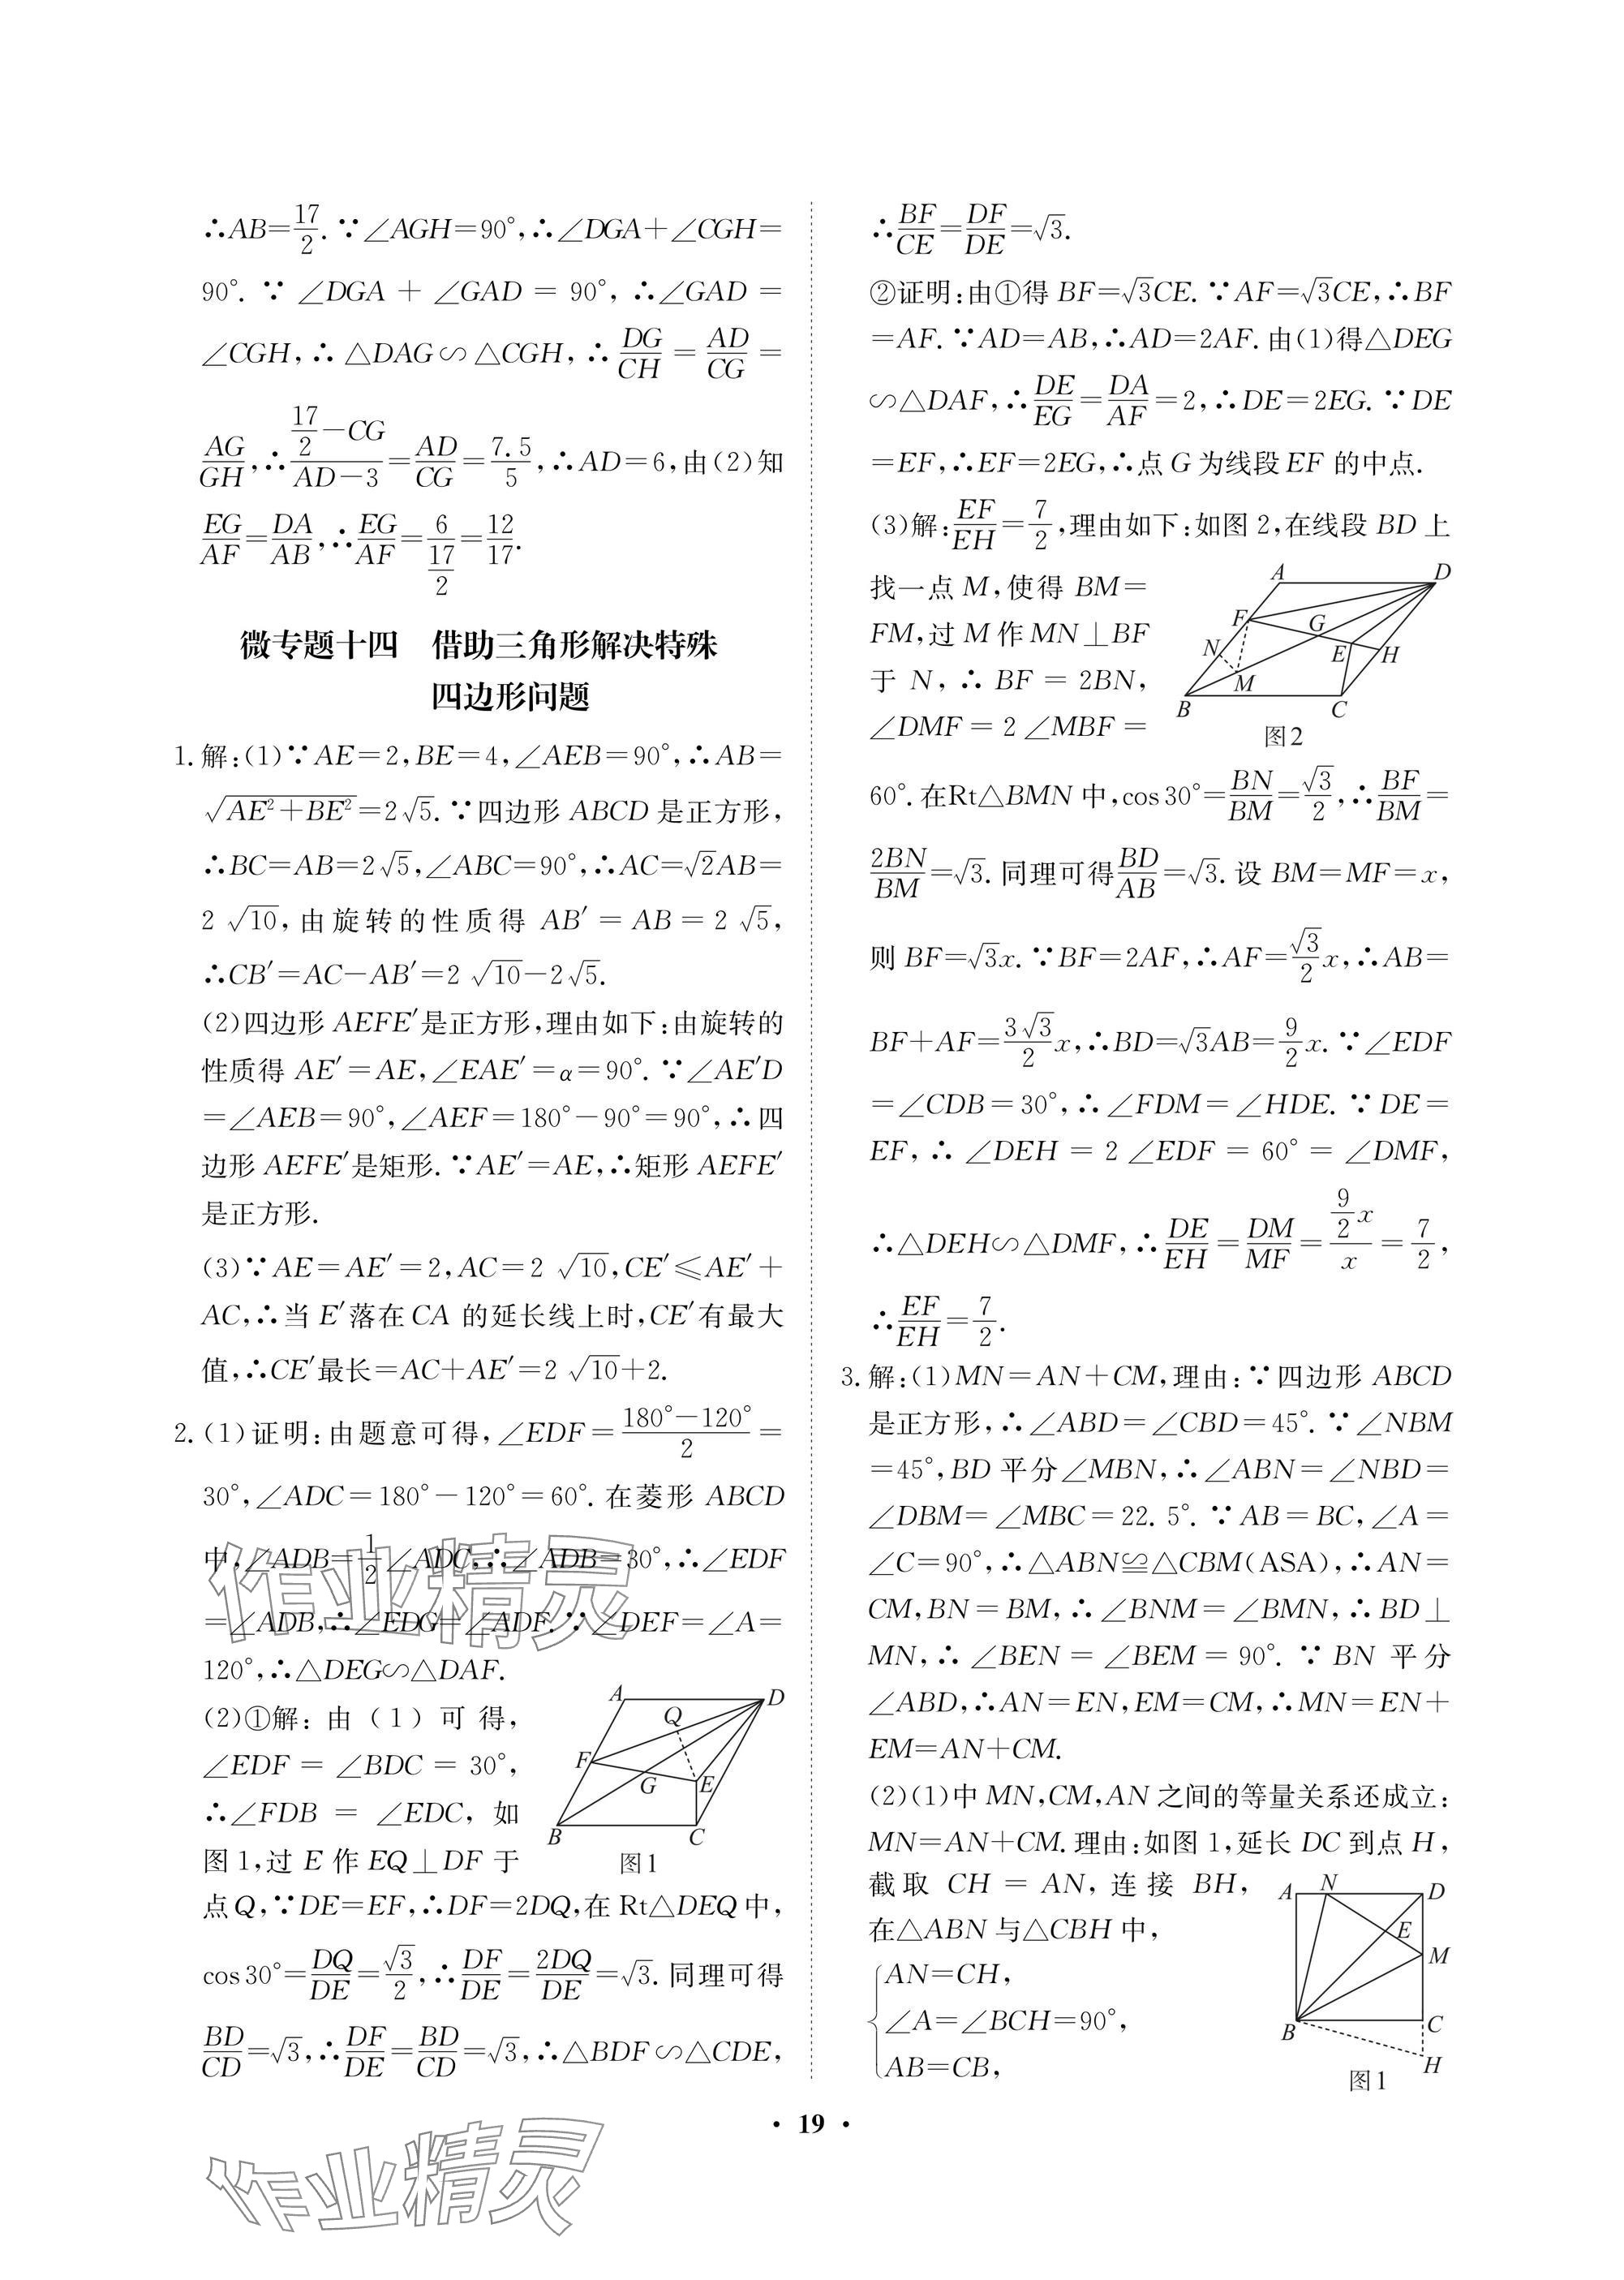 ∴AB=17/2.∵∠AGH=90°,∴∠DGA+∠CGH=
90°.∵∠DGA+∠GAD=90°,∴∠GAD=
∠CGH,∴△DAG∽△CGH,∴DG/CH=AD/CG=
AG/GH,∴(17/2-CG)/(AD-3)=AD/CG=7.5/5,∴AD=6,由(2)知
EG/AF=DA/AB,∴EG/AF=6/(17/2)=12/17.
微专题十四 借助三角形解决特殊
四边形问题
1.解:(1)∵AE=2,BE=4,∠AEB=90°,∴AB=
√(AE²+BE²)=2√5.∵四边形ABCD是正方形,
∴BC=AB=2√5,∠ABC=90°,∴AC=√2AB=
2√10,由旋转的性质得AB′=AB=2√5,
∴CB′=AC-AB′=2√10-2√5.
(2)四边形AEFE′是正方形,理由如下:由旋转的
性质得AE′=AE,∠EAE′=α=90°.∵∠AE′D
=∠AEB=90°,∠AEF=180°-90°=90°,∴四
边形AEFE′是矩形.∵AE′=AE,∴矩形AEFE′
是正方形.
(3)∵AE=AE′=2,AC=2√10,CE′≤AE′+
AC,∴当E′落在CA的延长线上时,CE′有最大
值,∴CE′最长=AC+AE′=2√10+2.
2.(1)证明:由题意可得,∠EDF=(180°-120°)/2=
30°,∠ADC=180°-120°=60°.在菱形ABCD
中,∠ADB=1/2∠ADC,∴∠ADB=30°,∴∠EDF
=∠ADB,∴∠EDG=∠ADF.∵∠DEF=∠A=
120°,∴△DEG∽△DAF.
(2)①解:由(1)可得,
∠EDF=∠BDC=30°,
∴∠FDB=∠EDC,如
图1,过E作EQ⊥DF于
A D Q F G E B C
图1
点Q,∵DE=EF,∴DF=2DQ,在Rt△DEQ中,
cos30°=DQ/DE=√3/2,∴DF/DE=2DQ/DE=√3.同理可得
BD/CD=√3,∴DF/DE=BD/CD=√3,∴△BDF∽△CDE,
∴BF/CE=DF/DE=√3.
②证明:由①得BF=√3CE.∵AF=√3CE,∴BF
=AF.∵AD=AB,∴AD=2AF.由(1)得△DEG
∽△DAF,∴DE/EG=DA/AF=2,∴DE=2EG.∵DE
=EF,∴EF=2EG,∴点G为线段EF的中点.
(3)解:EF/EH=7/2,理由如下:如图2,在线段BD上
找一点M,使得BM=
FM,过M作MN⊥BF
于N,∴BF=2BN,
∠DMF=2∠MBF=
A D F G N E H M B C
图2
60°.在Rt△BMN中,cos30°=BN/BM=√3/2,∴BF/BM=
2BN/BM=√3.同理可得BD/AB=√3.设BM=MF=x,
则BF=√3x.∵BF=2AF,∴AF=√3/2x,∴AB=
BF+AF=3√3/2x,∴BD=√3AB=9/2x.∵∠EDF
=∠CDB=30°,∴∠FDM=∠HDE.∵DE=
EF,∴∠DEH=2∠EDF=60°=∠DMF,
∴△DEH∽△DMF,∴DE/EH=DM/MF=(9/2x)/x=7/2,
∴EF/EH=7/2.
3.解:(1)MN=AN+CM,理由:∵四边形ABCD
是正方形,∴∠ABD=∠CBD=45°.∵∠NBM
=45°,BD平分∠MBN,∴∠ABN=∠NBD=
∠DBM=∠MBC=22.5°.∵AB=BC,∠A=
∠C=90°,∴△ABN≌△CBM(ASA),∴AN=
CM,BN=BM,∴∠BNM=∠BMN,∴BD⊥
MN,∴∠BEN=∠BEM=90°.∵BN平分
∠ABD,∴AN=EN,EM=CM,∴MN=EN+
EM=AN+CM.
(2)(1)中MN,CM,AN之间的等量关系还成立:
MN=AN+CM.理由:如图1,延长DC到点H,
截取CH=AN,连接BH,
在△ABN与△CBH中,
{AN=CH,
∠A=∠BCH=90°,
AB=CB,
A N D E M B C H
图1
· 19 ·
作业精灵
作业精灵